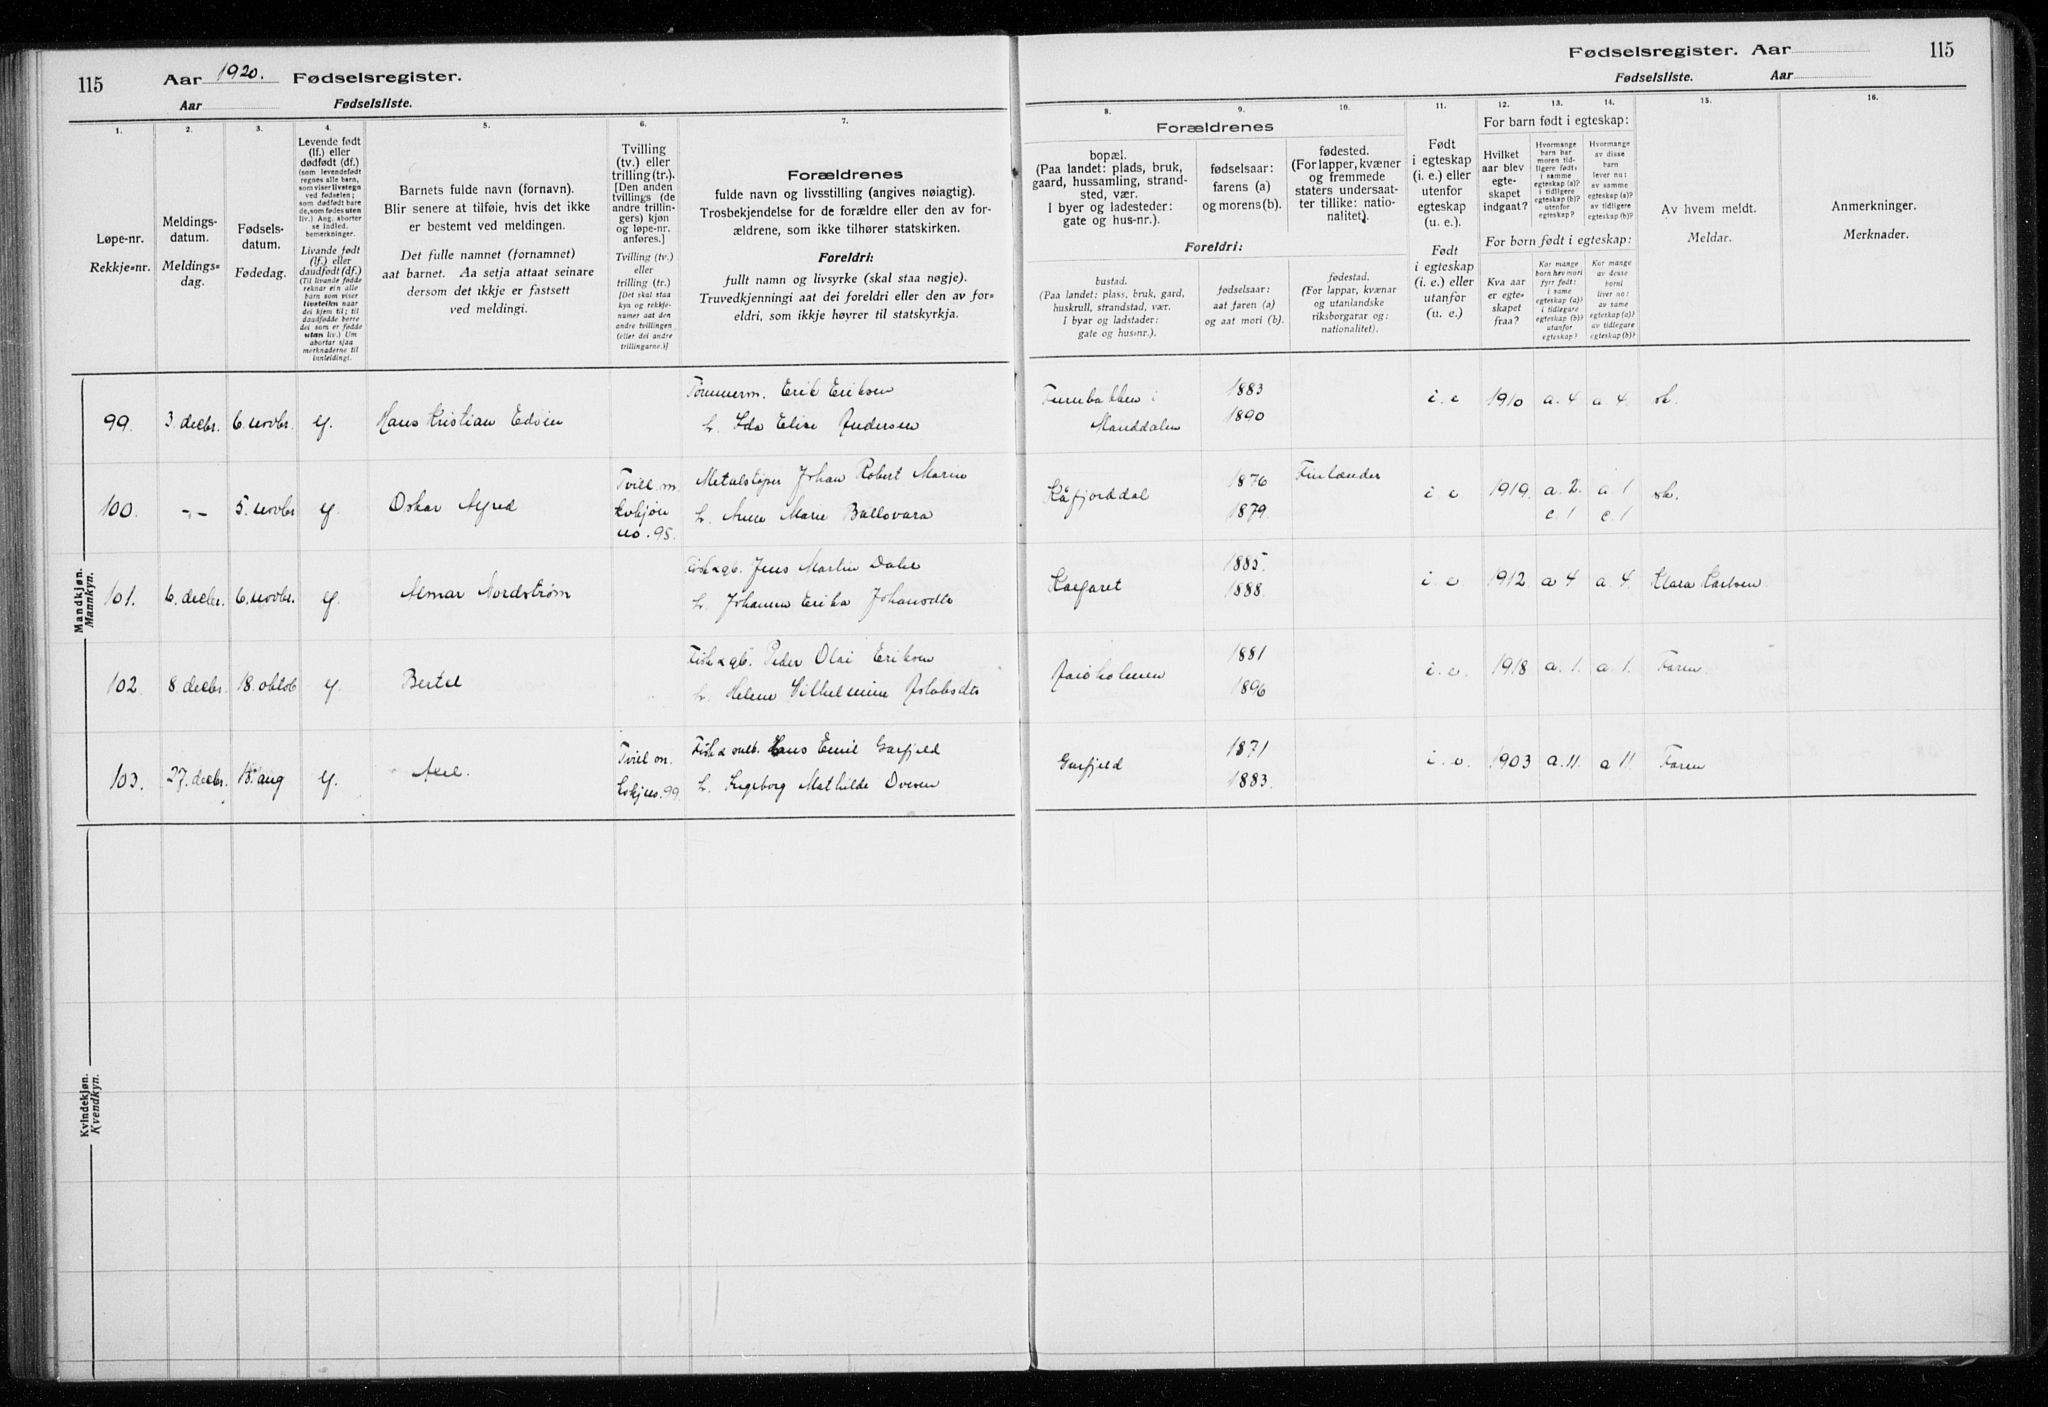 115 Aar 1920. Fødselsregister.
Aar Fødselsliste.
Fødselsregister. Aar 115
Fødselsliste. Aar
1. 2. 3. 4. 5. 6. 7.
Løpe-nr.
Rekkje=nr.
Meldings-
datum.
Meldings=
dag.
Fødsels-
datum.
Fødedag.
Levende født
(lf.) eller
dødfødt (df.)
(som levendefødt
regnes alle barn,
som viser livstegn
ved fødselen;
som dødfødt bare
de, som fødes uten
liv.) Ang. aborter
se indled.
bemerkninger.
Livande født
(lf.) eller
daudfødt (df.)
(Til livande fødde
reknar ein alle
barn som viser
livsteikn naar
dei kjem til; til
daudfødde berre
dei som er fødde
utan liv.) Um
abortar sjaa
merknaderne til
innleidingi.
Barnets fulde navn (fornavn).
Blir senere at tilføie, hvis det ikke
er bestemt ved meldingen.
Det fulle namnet (fornamnet)
aat barnet. Aa setja attaat seinare
dersom det ikkje er fastsett
ved meldingi.
Tvilling
(tv.) eller
trilling (tr.).
[Den anden
tvillings (de
andre trillin-
gers) kjøn
og løpe-nr.
anføres.]
Tvilling (tv.)
eller
trilling (tr.)
[Det skal staa
kyn og rekkje-
numer aat den
andre tvillingen
(eller dei andre
trillingarne.)]
Forældrenes
fulde navn og livsstilling (angives nøiagtig).
Trosbekjendelse for de forældre eller den av for-
ældrene, som ikke tilhører statskirken.
Foreldri:
fullt namn og livsyrke (skal staa nøgje).
Truvedkjenningi aat dei foreldri eller den av for-
eldri, som ikkje høyrer til statskyrkja.
8. 9. 10. 11. 12. 13. 14. 15. 16.
Forældrenes
bopæl.
(Paa landet: plads, bruk,
gaard, hussamling, strand-
sted, vær.
I byer og ladesteder:
gate og hus-nr.).
fødselsaar:
farens (a)
og morens (b).
fødested.
(For lapper, kvæner
og fremmede
staters undersaat-
ter tillike: natio-
nalitet).
Foreldri:
bustad.
(Paa landet: plass, bruk, gard,
huskrull, strandstad, vær.
I byar og ladstader:
gate og hus=nr.).
fødselsaar:
aat faren (a)
og aat mori (b).
fødestad.
(For lappar, kvænar
og utanlandske
riksborgarar og:
nationalitet).
Født
i egteskap
(i. e.) eller
utenfor
egteskap
(u. e.).
Født
i egteskap
(i. e.) eller
utanfor
(u. e.)
For barn født i egteskap:
Hvilket
aar blev
egte-
skapet
indgaat?
Hvormange
barn har
moren tid-
ligere født,
i samme
egteskap (a)?
i tidligere
egteskap (b)?
utenfor
egteskap?
Hvormange
av disse
barn
lever nu:
av samme
egteskap (a)?
av tidligere
egteskap (b)?
For born født i egteskap:
Kva aar
er egte-
skapet
fraa?
Kor mange
born hev mori
fyrr født:
i same
egteskap (a)?
i tidlegare
egteskap (b)?
utanfor
egteskap?
Kor mange
av desse
borni
liver no:
av same
egteskap (a)?
av tidlegare
egteskap (b)?
Av hvem meldt.
Meldar.
Anmerkninger.
Merknader.
Mandkjøn.
Mannkyn.
99. 3. decbr. 6. novbr. lf. Hans Kristian Edvin
Tømmerm. Erik Eriksen
h. Ida Elise Andersen
Manddalen
1883
1890
i. e 1910 a. 4 a 4.
100. -,,- 5. novbr lf. Oskar Alfred
Tvill. m.
kvkjøn
no. 95.
Metalstøper Johan Robert
h. Anne Marie Ballovara
Kåfjorddal
1876
1879.
Finlænder
i e 1919. a. 2. a 1
c. 1 c. 1
101. 6. decbr. 6. novbr. lf. Almar Nordstrøm
Fisk & gb. Jens Martin Dale
h. Johanna Erika Johansdtr
1885.
1888.
i. e 1912 a 4 a. 4. Klara Karlsen
102. 8. decbr. 18. oktob lf. Bertel
Fisk & gb. Peder Olai Eriksen
h. Helene Vilhelmine
1881
1896
i. e. 1918 a. 1. a 1. Faren.
103. 27. decbr. 15. aug lf. Axel.
Tvill m.
kvkj no. 99.
Hans Emil Garfjeld
h. Ingeborg Mathilde
Garfjeld
1871
1883.
i. e. 1903 a. 11. a 11. Faren
Kvindekjøn.
Kvendkyn.